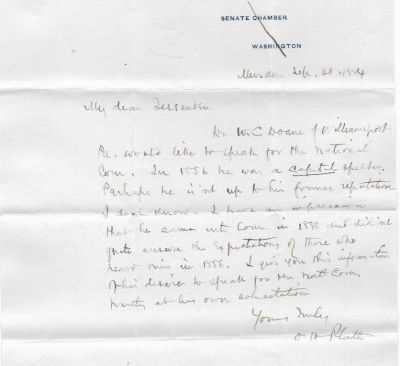 SENATE CHAMBER
WASHINGTON
Meriden Sep. 20 1884
My dear Fessenden.
Dr W. C. Doane of Williamsport
Pa. would like to speak for the National
Com. In 1856 he was a capital speaker.
Perhaps he isn't up to his former reputation
I dont know - I have an impression
that he came into Conn in 1880 and didn't
quite answer the expectations of those who
heard him in 1856. I give you this information
of his desire to speak for the Natl Com,
at his own solicitation
Yours Truly
O H Platt